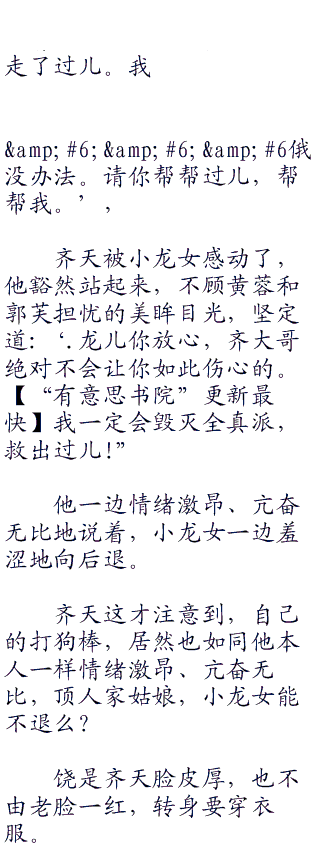 走了过儿。我
&amp; #6; &amp; #6; &amp; #6俄
没办法。请你帮帮过儿，帮
帮我。’，
齐天被小龙女感动了，
他豁然站起来，不顾黄蓉和
郭芙担忧的美眸目光，坚定
道：‘．龙儿你放心，齐大哥
绝对不会让你如此伤心的。
【“有意思书院”更新最
快】我一定会毁灭全真派，
救出过儿!”
他一边情绪激昂、亢奋
无比地说着，小龙女一边羞
涩地向后退。
齐天这才注意到，自己
的打狗棒，居然也如同他本
人一样情绪激昂、亢奋无
比，顶人家姑娘，小龙女能
不退么?
饶是齐天脸皮厚，也不
由老脸一红，转身要穿衣
服。